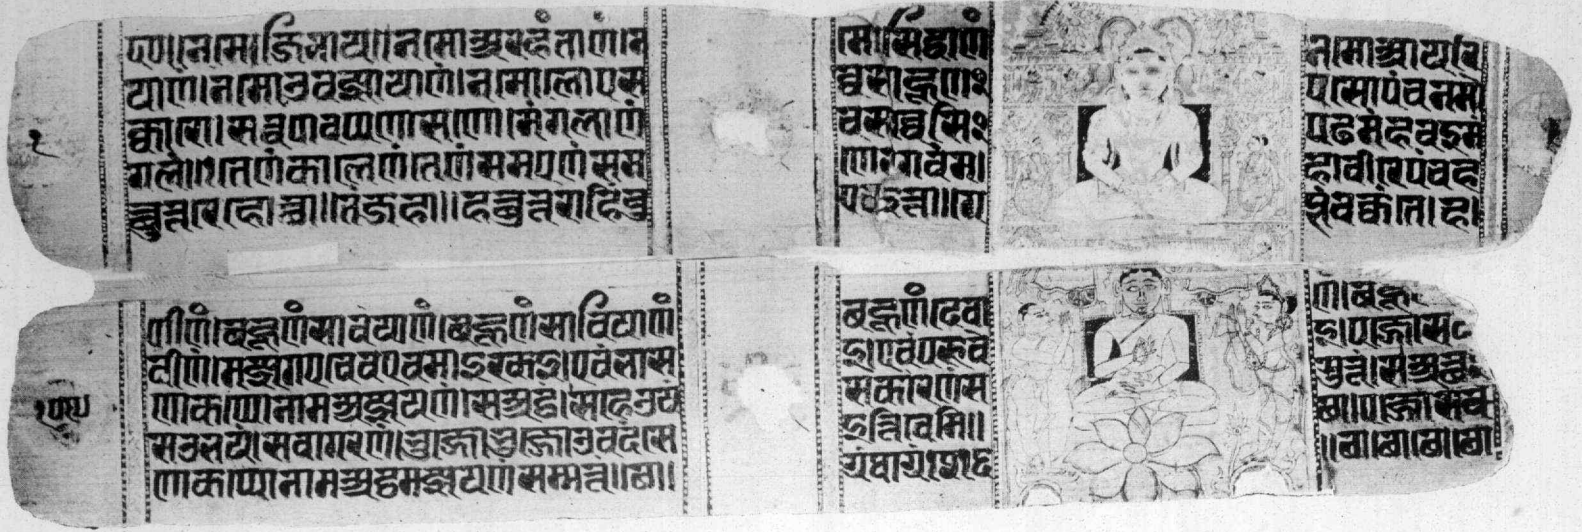 नमो जिनाय॥ नमो अरहंताणं। नमो सिद्धाणं नमो आयरि
याणं। नमो उवज्झायाणं। नमो लोए सव्वसाहूणं एसो पंचनमो
क्कारो। सव्वपावप्पणासणो। मंगलाणं च सव्वेसिं पढमं हवइ मं
१ गलं॥१॥ तेणं कालेणं तेणं समएणं समणे भगवं महावीरे पंचह
त्थुत्तरे होत्था॥ तं जहा॥ हत्थुत्तराहिं चुए चइत्ता॥ ग वक्कंते। ह
णीणं। बहूणं सावयाणं। बहूणं सावियाणं बहूणं देवाणं। बहूणं
वीणं। मज्झगए चेव एवमाइक्खइ। एवं भासइ। एवं परूवेइ। पज्जोस
णाकप्पो नाम अज्झयणं। सअट्ठं। सहेउयं सकारणं ससुत्तं। सअत्थं
सउभयं। सवागरणं। भुज्जो भुज्जो उवदंसेइ त्ति बेमि॥ छ॥ पज्जोसव
णाकप्पो नाम अट्ठममज्झयणं सम्मत्तं॥छ॥ ग्रंथाग्रं १२१६ ॥छ॥छ॥छ॥छ॥